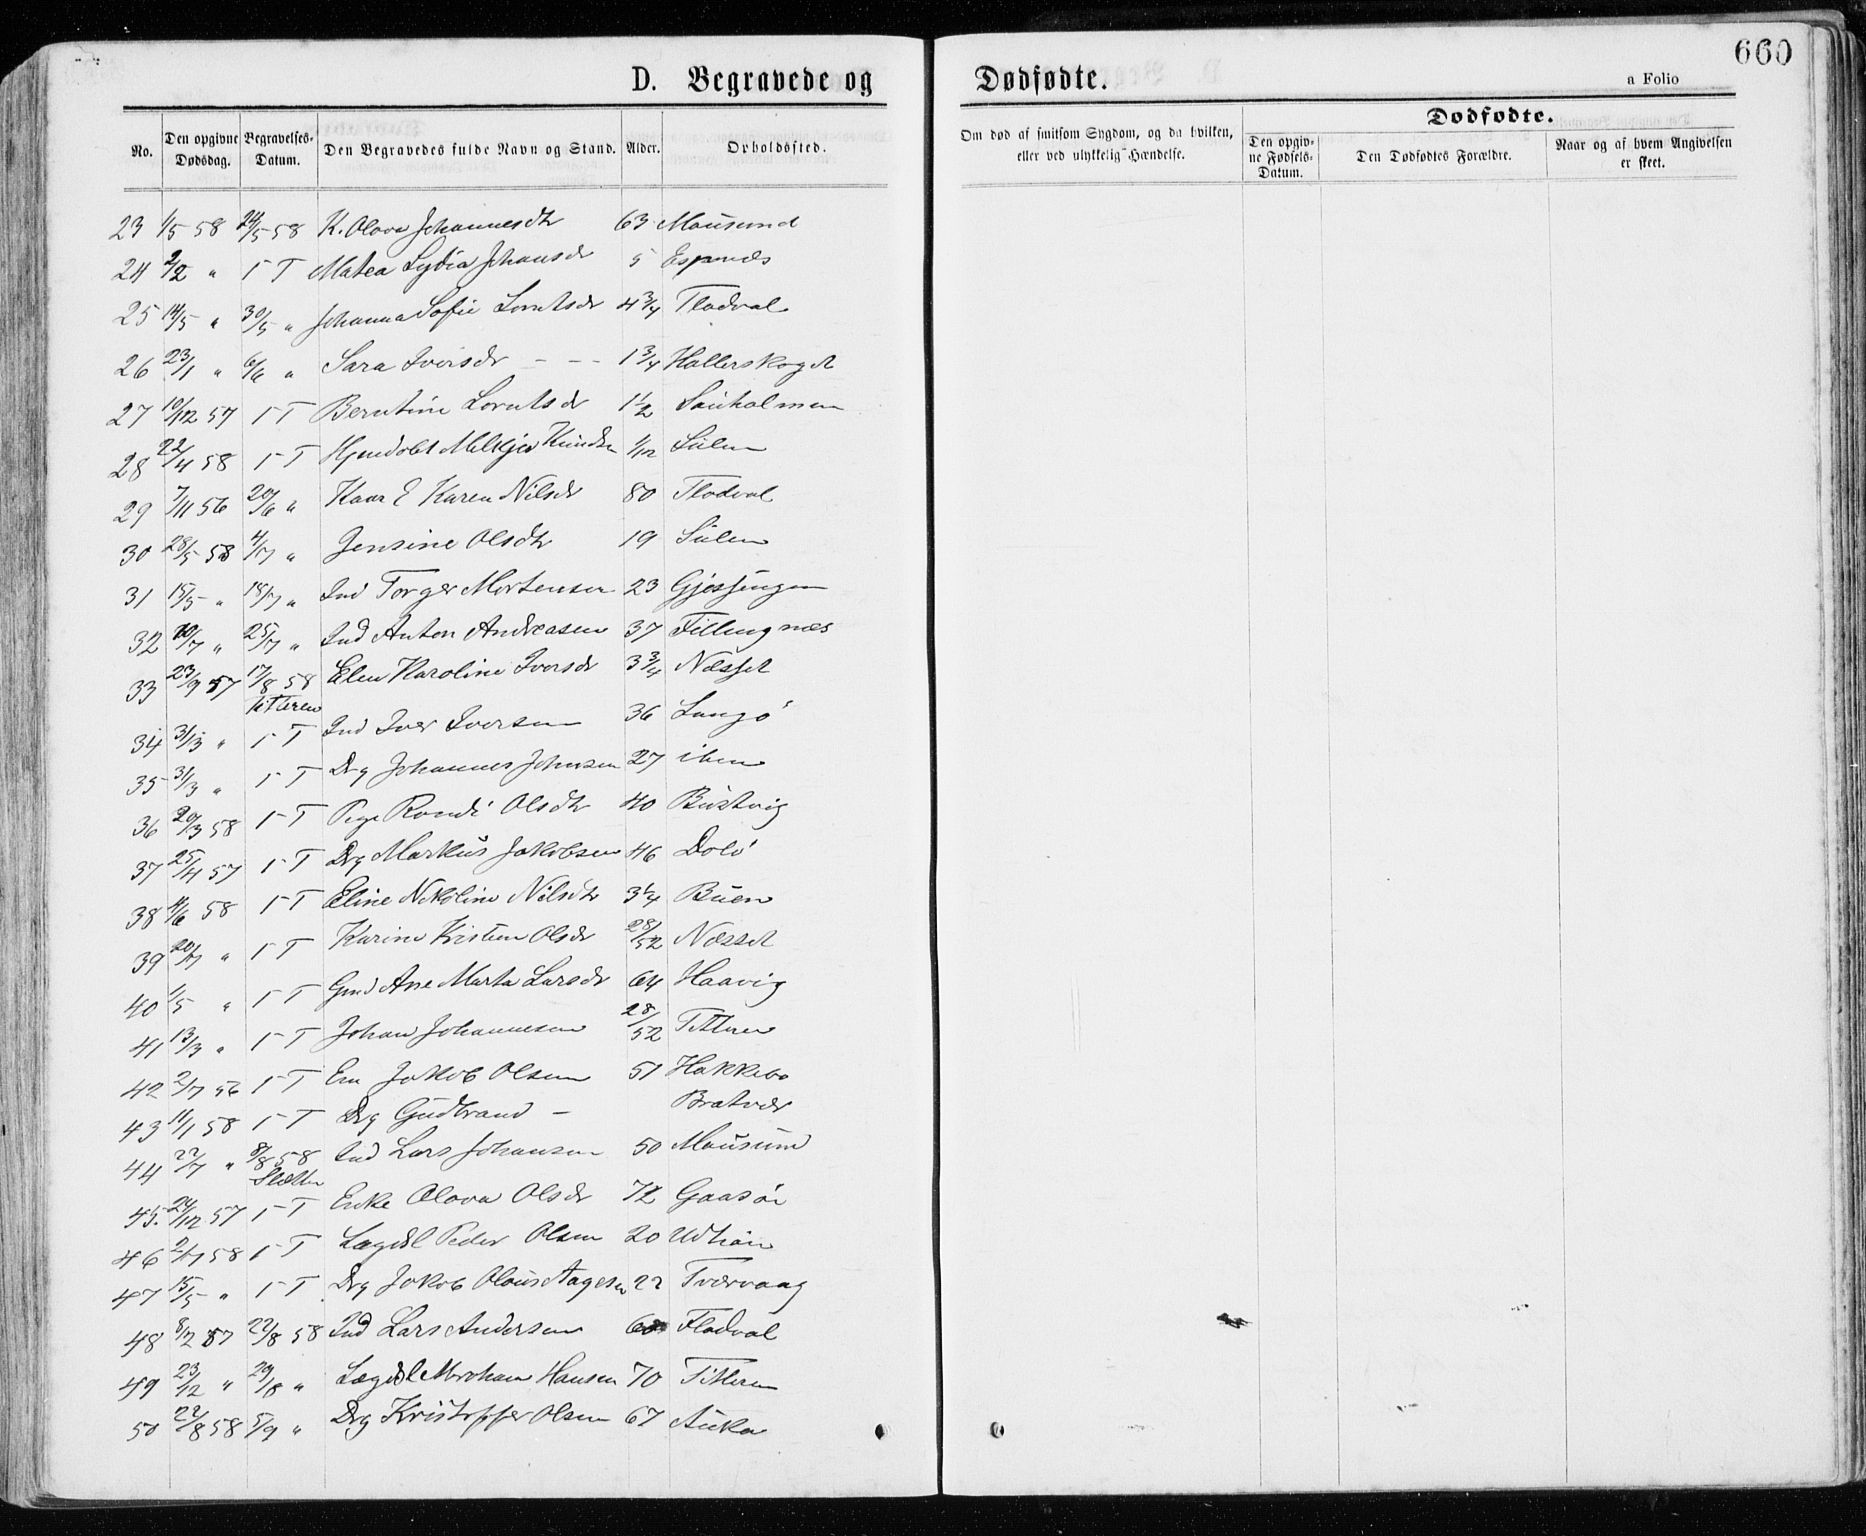 660
D. Begravede og Dødfødte.
a Folio
No. Den opgivne Dødsdag. Begravelses-Datum. Den Begravedes fulde Navn og Stand. Alder. Opholdssted.
Om død af smitsom Sygdom, og da hvilken, eller ved ulykkelig Hændelse.
Dødfødte.
Den opgivne Fødsels-Datum. Den Dødfødtes Forældre. Naar og af hvem Angivelsen er skeet.
23 1/5 58 24/5 58 K. Olava Johannesdtr 63 Mausund
24 2/2 " 1 T Matea Lydia Johansdr 5 Espnæs
25 14/5 " 30/5 " Johanna Sofie Lorntsdr 4 3/4 Flodval
26 23/1 " 6/6 " Sara Iversdr - - - 1 3/4 Hallerskoget
27 10/12 57 1 T Berntine Lorntsdr 1 1/2 Sauholmen
28 22/4 58 1 T Melkjer Knudsn 1/12 Sulen
29 7/11 56 20/6 " Kaar E Karen Nilsdr 80 Flodval
30 28/5 58 4/7 " Jensine Olsdtr 19 Sulen
31 15/5 " 18/7 " Ind Torger Mortensen 23 Gjessingen
32 10/7 " 25/7 " Ind Anton Andreasen 37 Fillingnæs
33 23/9 57 17/8 58 Elen Karoline Iversdr 3 3/4 Næsset
Titteren
34 31/3 " 1 T Ind Iver Iversen 36 Langø
35 31/3 " 1 T Drg Johannes Johnsen 27 ibm
36 20/3 58 1 T Pige Randi Olsdtr 40 Bustvig
37 25/4 57 1 T Drg Markus Jakobsen 46 Dolø
38 4/6 58 1 T Eline Nikoline Nilsdtr 3 1/4 Buen
39 20/7 " 1 T Karine Kristine Olsdr 28/52 Næsset
40 1/5 " 1 T Gmd Ane Marta Larsdr 64 Haavig
41 13/3 " 1 T Johan Johannesen 28/52 Titteren
42 2/7 56 1 T Em Jakob Olsen 51 Hakkebo
43 11/1 58 1 T Drg Gudbrand - Bratvær
44 27/7 " 8/8 58 Ind Lars Johansen 50 Mausund
Sletten
45. 24/12 57 1 T Enke Olava Olsdr 72 Gaasøn
46 2/7 58 1 T Lægdsl Peder Olsen 20
47 15/5 " 1 T Drg Jakob Olaus Aagesen 22 Tværvaag
48 8/2 57 22/8 58 Ind Lars Andersen 60 Flodval
49 23/12 " 29/8 " Lægdsl Abraham Hansen 70 Titteren
50 22/8 58 5/9 " Drg Kristoffer Olsen 67 Auka